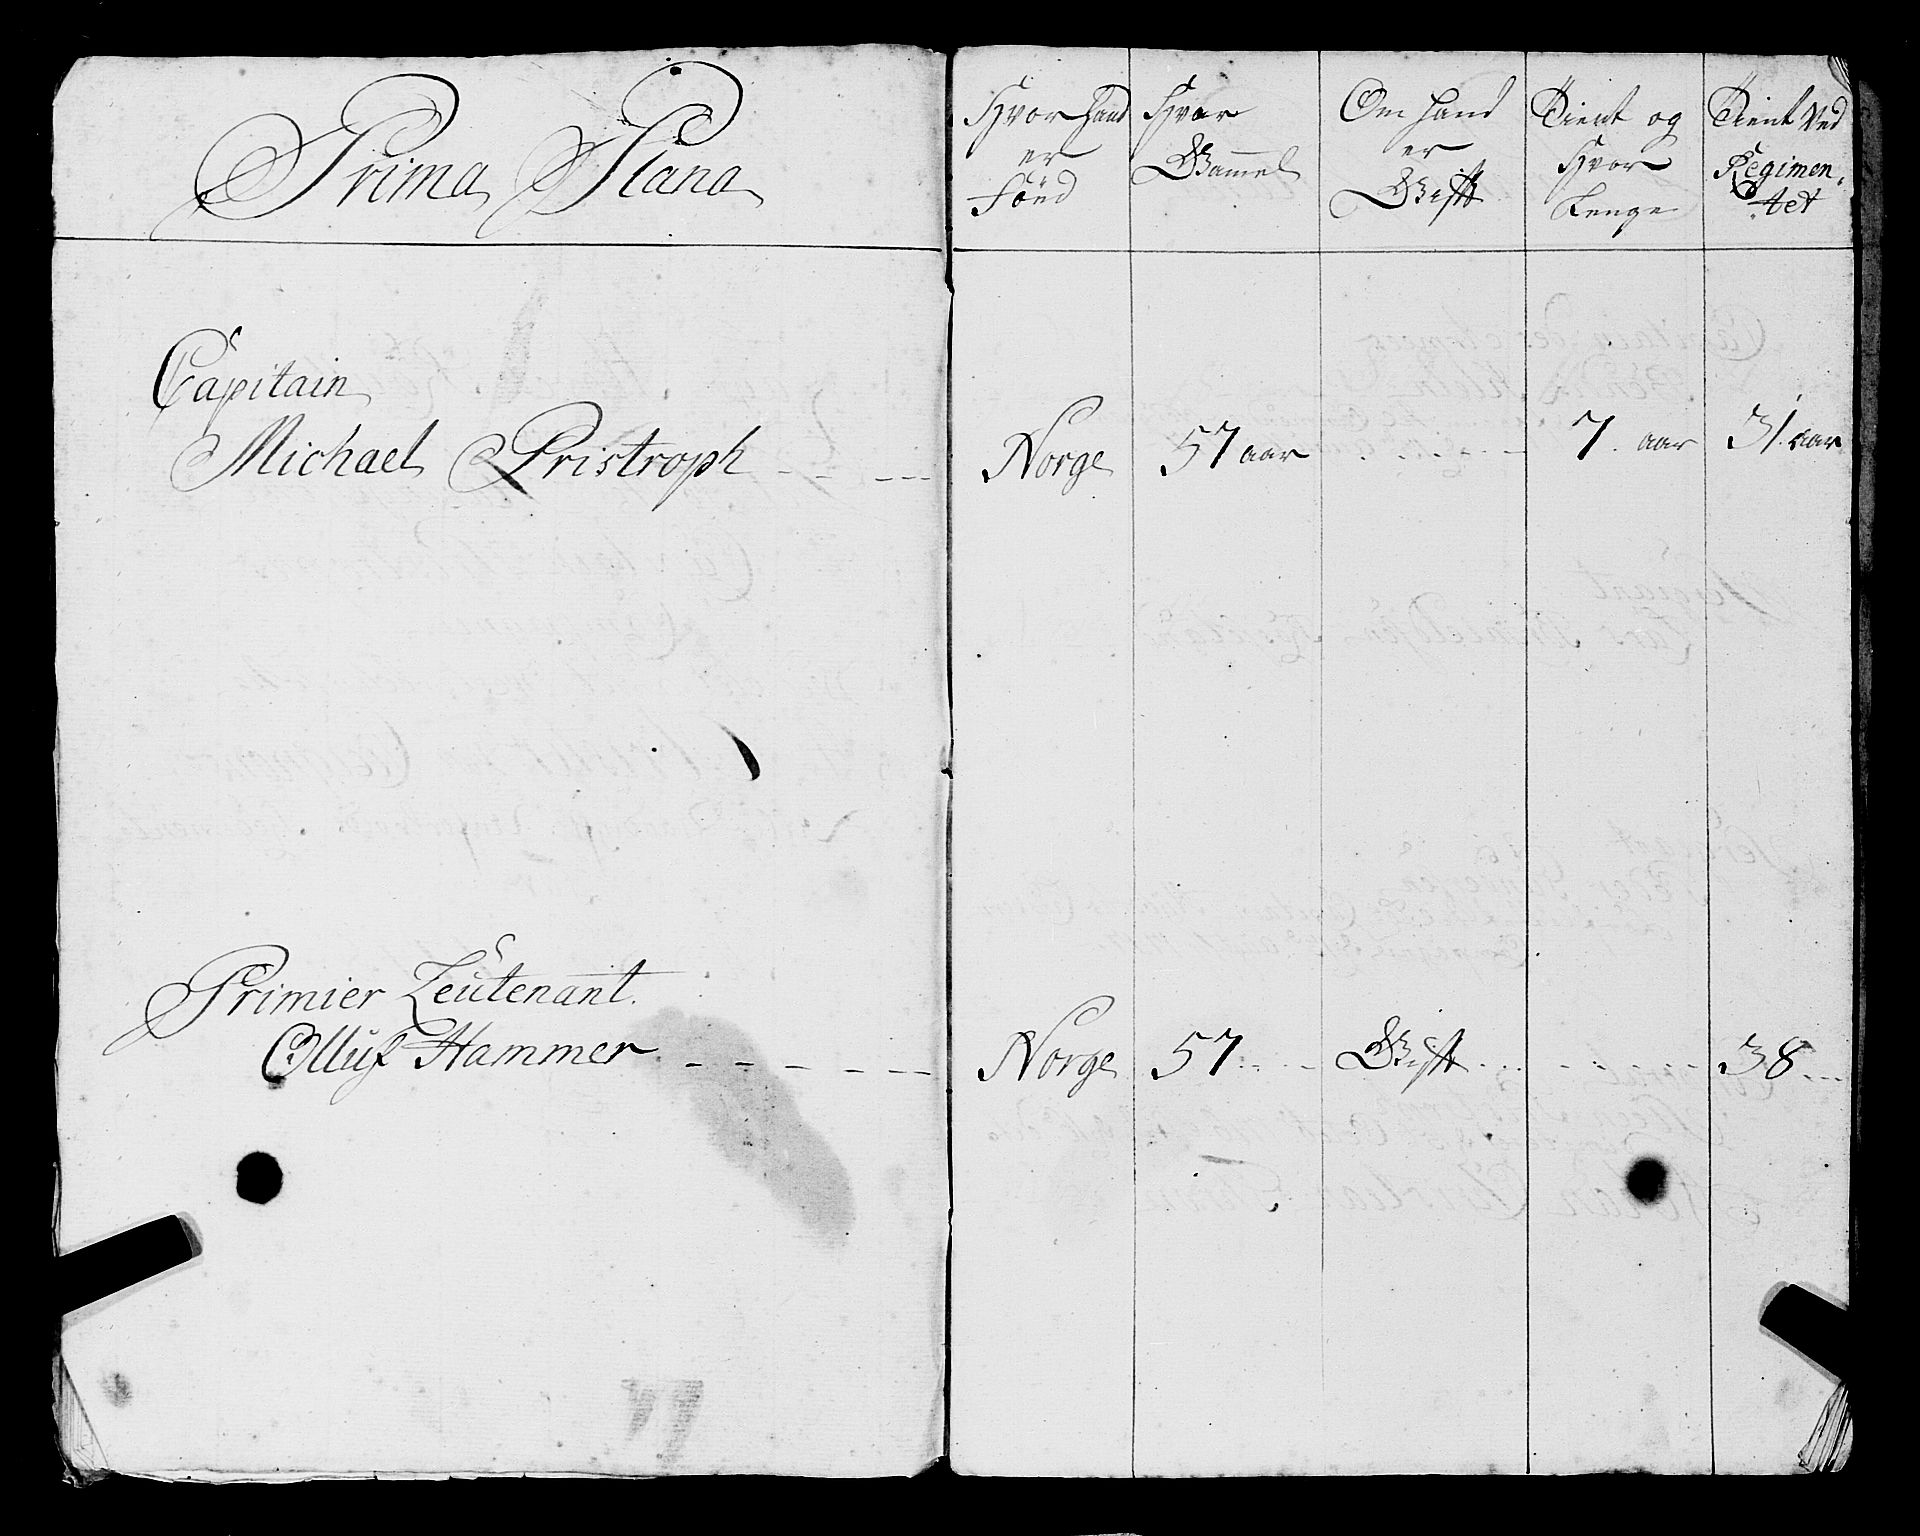 Prima Plana
Hvor hand er Föed
Hvor Gammel
Om hand er Gift
Tient og Hvor Lenge
Tient Ved Regimen-tet
Capitain
Michael Pristroph Norge 57 aar 7. aar 31. aar
Primier Leutenant.
Olluf Hammer Norge 57 Gift 38